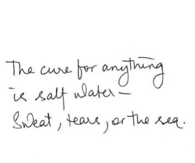 The cure for anything
is salt water –
Sweat, tears, or the sea.